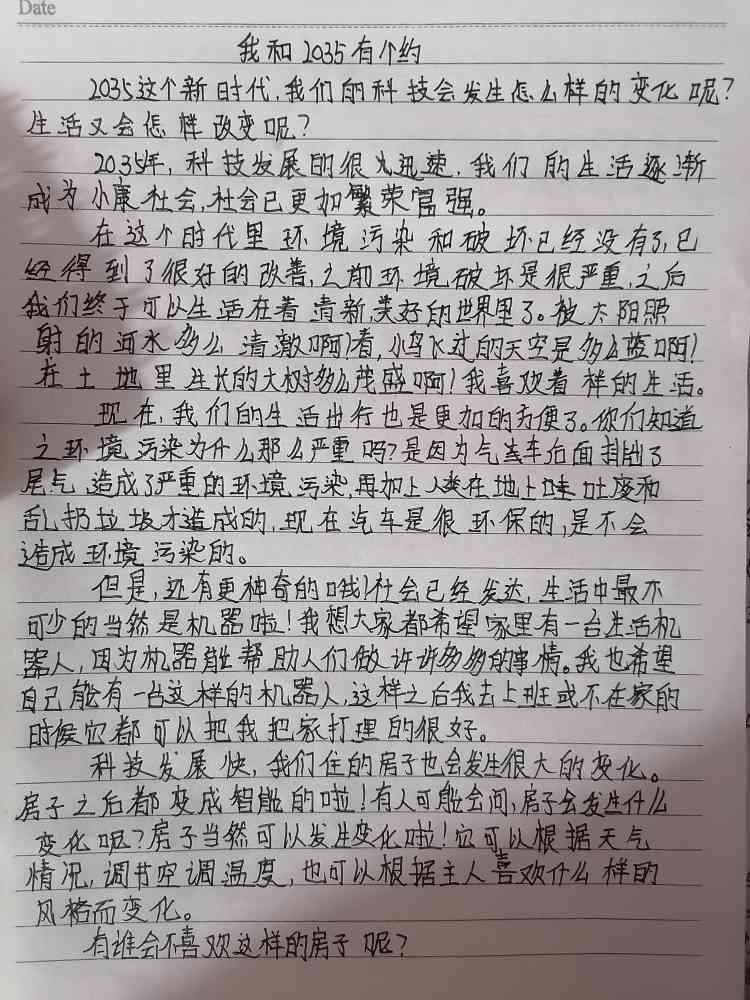 Date
我和2035有个约
2035这个新时代,我们的科技会发生怎么样的变化呢?
生活又会怎样改变呢?
2035年,科技发展的很丸迅速,我们的生活逐渐
成为小康社会,社会已更加繁荣富强。
在这个时代里环境污染和破坏已经没有了,已
经得到了很好的改善,之前环境破坏是很严重,之后
我们终于可以生活在着清新,美好的世界里了。被太阳照
射的河水多么清澈啊!看,小鸟飞过的天空是多么蓝啊!
在土地里生长的大树多么茂盛啊!我喜欢着样的生活。
现在,我们的生活出行也是更加的方便了。你们知道
之环境污染为什么那么严重吗?是因为气车后面排出了
尾气,造成了严重的环境污染,再加上人类在地上吐废和
乱扔垃圾才造成的,现在汽车是很环保的,是不会
造成环境污染的。
但是,还有更神奇的哦!社会已经发达,生活中最不
可少的当然是机器啦!我想大家都希望家里有一台生活机
器人,因为机器能帮助人们做许许多多的事情。我也希望
自己能有一台这样的机器人,这样之后我去上班或不在家的
时候它都可以把我把家打理的很好。
科技发展快,我们住的房子也会发生很大的变化。
房子之后都变成智能的啦!有人可能会问,房子会发生什么
变化呢?房子当然可以发生变化啦!它可以根据天气
情况,调节空调温度,也可以根据主人喜欢什么样的
风格而变化。
有谁会不喜欢这样的房子呢?